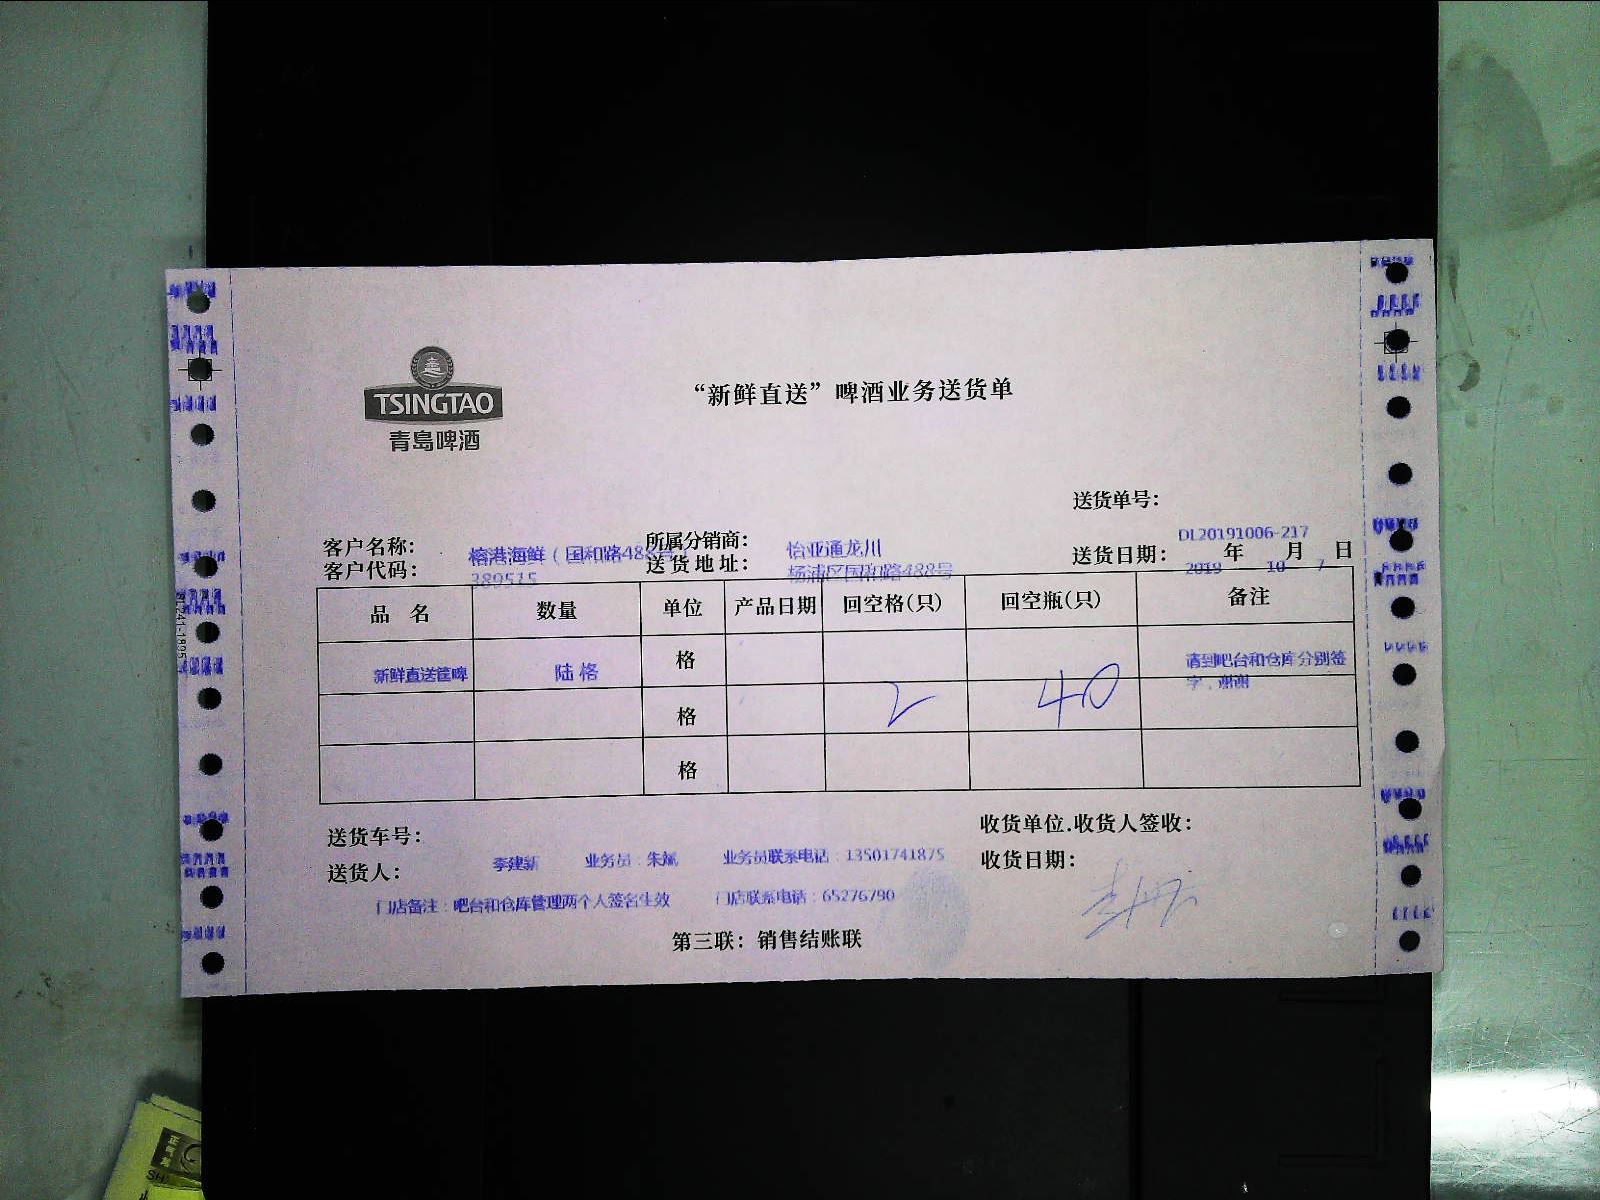 TSINGTAO
青岛啤酒
“新鲜直送”啤酒业务送货单
送货单号：
DL20191006-217
客户名称： 榕港海鲜（国和路488号 所属分销商： 怡亚通龙川 送货日期： 年 月 日
2019 10 7
客户代码： 389515 送货地址： 杨浦区国和路488号
品 名 数量 单位 产品日期 回空格(只) 回空瓶(只) 备注
新鲜直送筐啤 陆 格 格 请到吧台和仓库分别签
字，谢谢
格 2 40
格
送货车号： 收货单位.收货人签收：
送货人： 李建新 业务员：朱斌 业务员联系电话：13501741875 收货日期：
门店备注：吧台和仓库管理两个人签名生效 门店联系电话：65276790
第三联：销售结账联